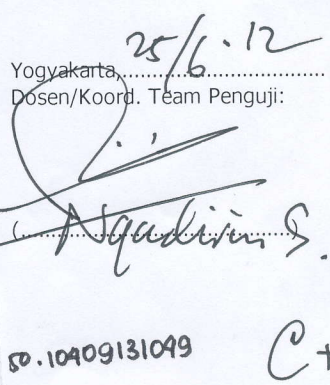 Yogyakarta,............25/6-12
Dosen/Koord. Team Penguji:
(....Ngadirin S.....)
50.10409131049 C+